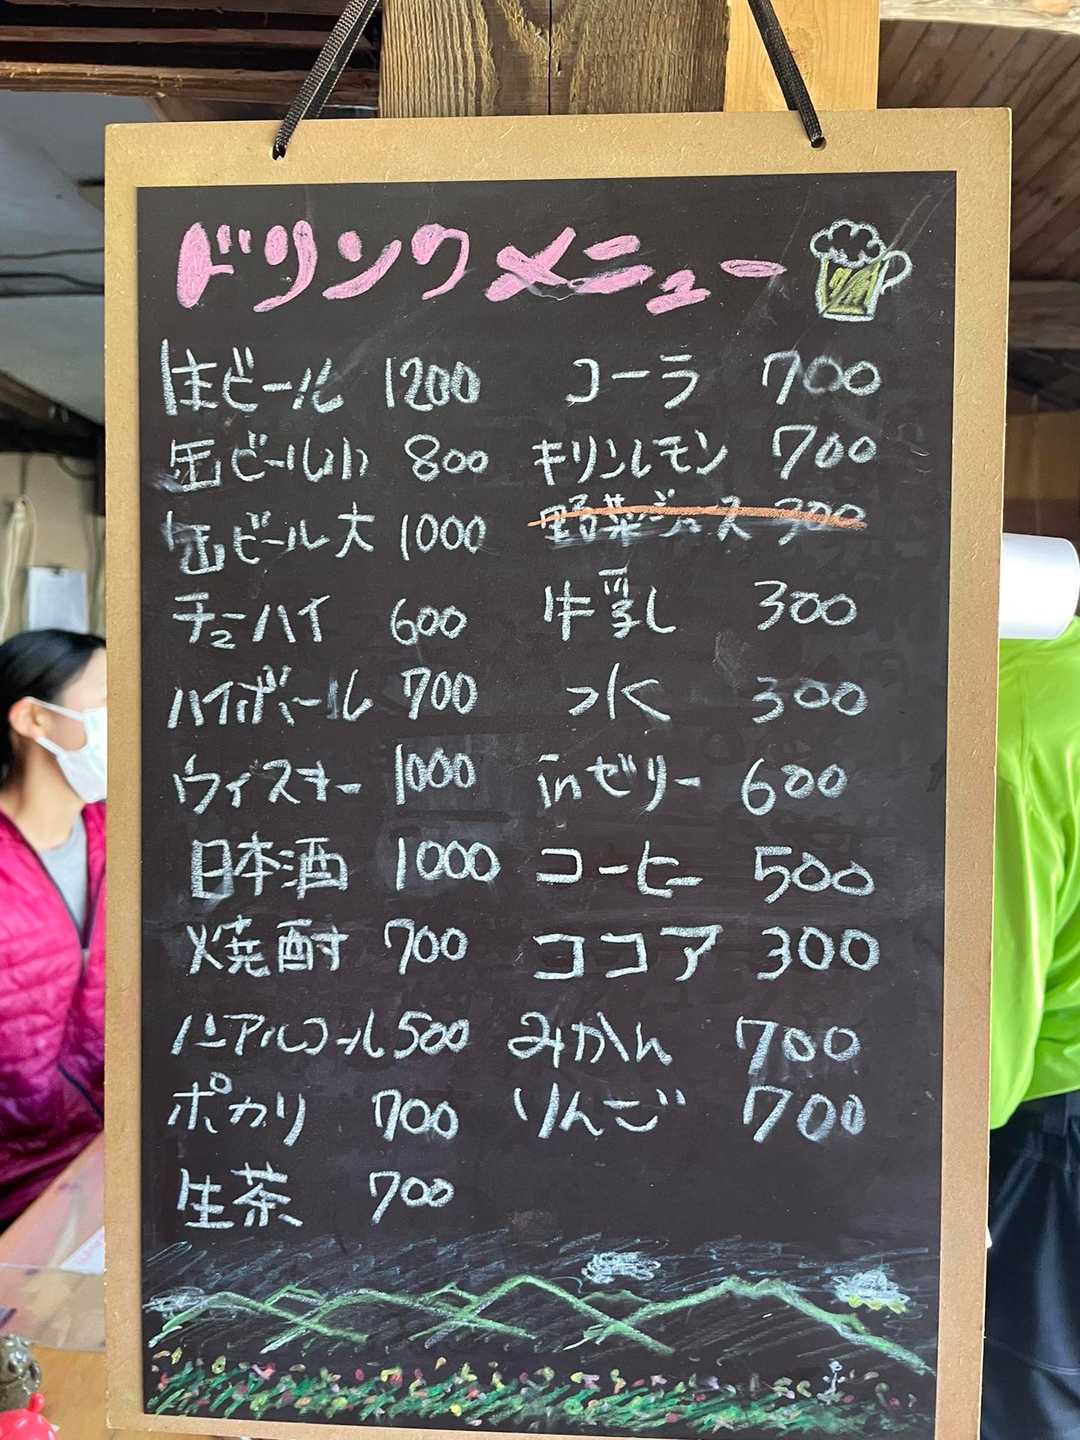 ドリンクメニュー
生ビール 1200
缶ビール小 800
缶ビール大 1000
チューハイ 600
ハイボール 700
ウィスキー 1000
日本酒 1000
焼酎 700
ノンアルコール 500
ポカリ 700
生茶 700
コーラ 700
キリンレモン 700
野菜ジュース 300
牛乳 300
水 300
inゼリー 600
コーヒー 500
ココア 300
みかん 700
りんご 700